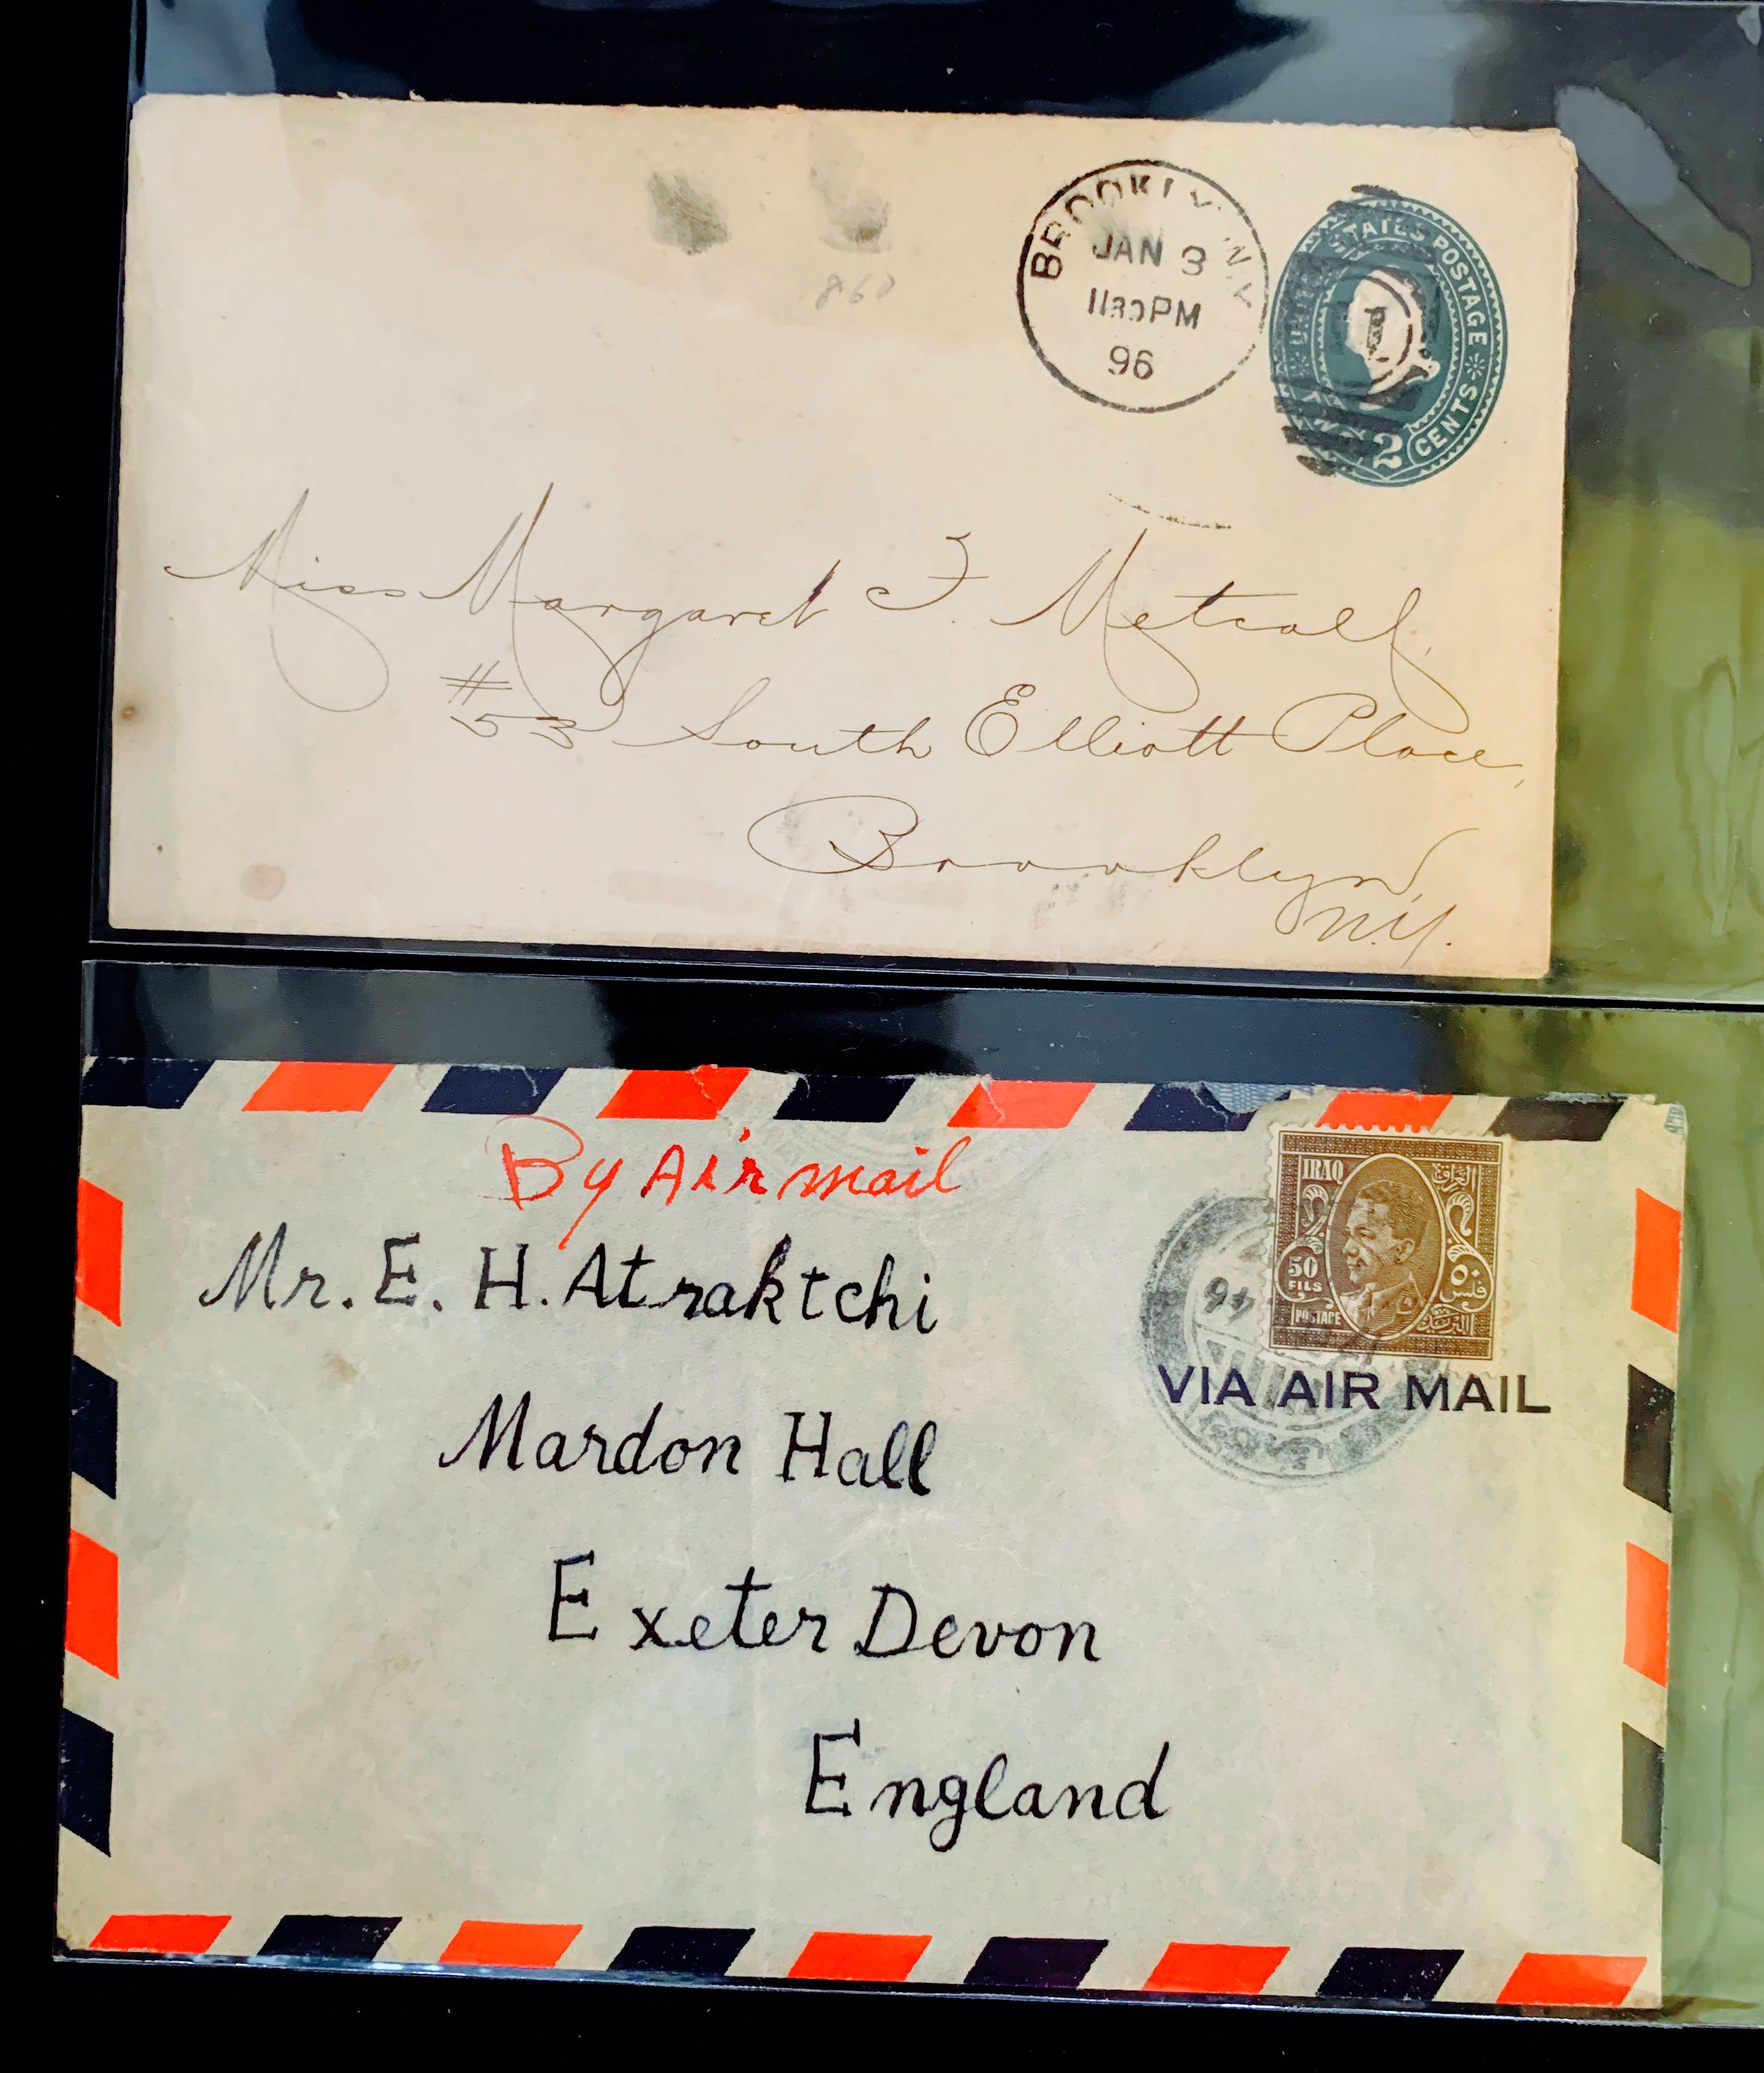 BROOKLYN NY
JAN 3
1130PM
96
UNITED STATES POSTAGE
TWO 2 CENTS
1
860
Miss Margaret F. Metcalf,
#53 South Elliott Place,
Brooklyn,
N.Y.
By Airmail
IRAQ العراق
50 ٥٠
FILS فلس
POSTAGE البريد
46
VIA AIR MAIL
Mr. E. H. Atraktchi
Mardon Hall
Exeter Devon
England